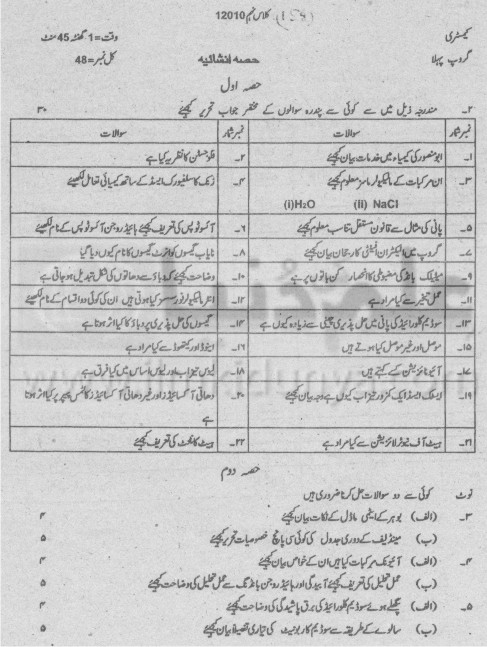 کلاس نہم 12010
کیمسٹری
وقت=1 گھنٹہ 45 منٹ
گروپ پہلا
حصہ انشائیہ
کل نمبر=48
حصہ اول
۲۔ مندرجہ ذیل میں سے کوئی سے پندرہ سوالوں کے مختصر جواب تحریر کیجئے ۳۰
نمبر شمار سوالات نمبر شمار سوالات
۱۔ ابو منصور کی کیمیاء میں خدمات بیان کیجئے ۲۔ فلوجسٹن کا نظریہ کیا ہے
۳۔ ان مرکبات کے مالیکیولر ماسز معلوم کیجئے ۴۔ زنک کا سلفیورک ایسڈ کے ساتھ کیمیائی تعامل لکھیئے
(i)H₂O (ii) NaCl
۵۔ پانی کی مثال سے قانون مستقل تناسب معلوم کیجئے ۶۔ آئسوٹوپس کی تعریف کیجئے ہائیڈروجن آئسوٹوپس کے نام لکھیئے
۷۔ گروپ میں الیکٹران افینٹی کا رجحان بیان کیجئے ۸۔ نایاب گیسوں کو انرٹ گیسوں کا نام کیوں دیا گیا
۹۔ میٹیلک بانڈ کی مضبوطی کا انحصار کن باتوں پر ہے ۱۰۔ وضاحت کیجئے کہ دباؤ سے دھاتوں کی شکل تبدیل ہو جاتی ہے
۱۱۔ عمل تبخیر سے کیا مراد ہے ۱۲۔ انٹر مالیکیولر فورسسز کیا ہوتی ہیں ان کی کوئی دو اقسام کے نام لکھیئے
۱۳۔ سوڈیم کلورائیڈ کی پانی میں حل پذیری چینی سے زیادہ کیوں ہے ۱۴۔ گیسوں کی حل پذیری پر دباؤ کا کیا اثر ہوتا ہے
۱۵۔ موصل اور غیر موصل کیا ہوتے ہیں ۱۶۔ اینوڈ اور کیتھوڈ سے کیا مراد ہے
۱۷۔ آئیونائزیشن کسے کہتے ہیں ۱۸۔ لیوس تیزاب اور لیوس اساس میں کیا فرق ہے
۱۹۔ ایسٹک ایسڈ ایک کمزور تیزاب کیوں ہے وجہ بیان کیجئے ۲۰۔ دھاتی آکسائیڈز اور غیر دھاتی آکسائیڈز کا لٹمس پیپر پر کیا اثر ہوتا
ہے
۲۱۔ ہیٹ آف نیوٹرلائزیشن سے کیا مراد ہے ۲۲۔ ہیٹ کانٹنٹ کی تعریف کیجئے
حصہ دوم
نوٹ کوئی سے دو سوالات حل کرنا ضروری ہیں
۳۔ (الف) بوہر کے ایٹمی ماڈل کے نکات بیان کیجئے ۴
(ب) مینڈلیف کے دوری جدول کی کوئی سی پانچ خصوصیات تحریر کیجئے ۵
۴۔ (الف) آئیونک مرکبات کیا ہیں ان کے خواص بیان کیجئے ۴
(ب) عمل تحلیل کی تعریف کیجئے آبیدگی اور ہائیڈروجن بانڈنگ سے عمل تحلیل کی وضاحت کیجئے ۵
۵۔ (الف) پگھلے ہوئے سوڈیم کلورائیڈ کی برق پاشیدگی کی وضاحت کیجئے ۴
(ب) سالوے کے طریقہ سے سوڈیم کاربونیٹ کی تیاری تفصیلاً بیان کیجئے ۵